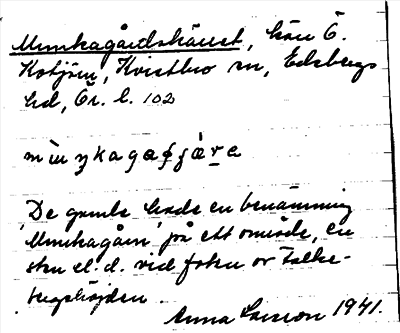 Munkagårdskärret, kärr Ö.
Kvistbro sn, Edsbergs
hd, Ör. l. 102
De gamla hade en benämning
'Munkagårn' på ett område, en
sten el. d. vid foten av Falke-
bergshöjden.
Anna Larsson 1941.